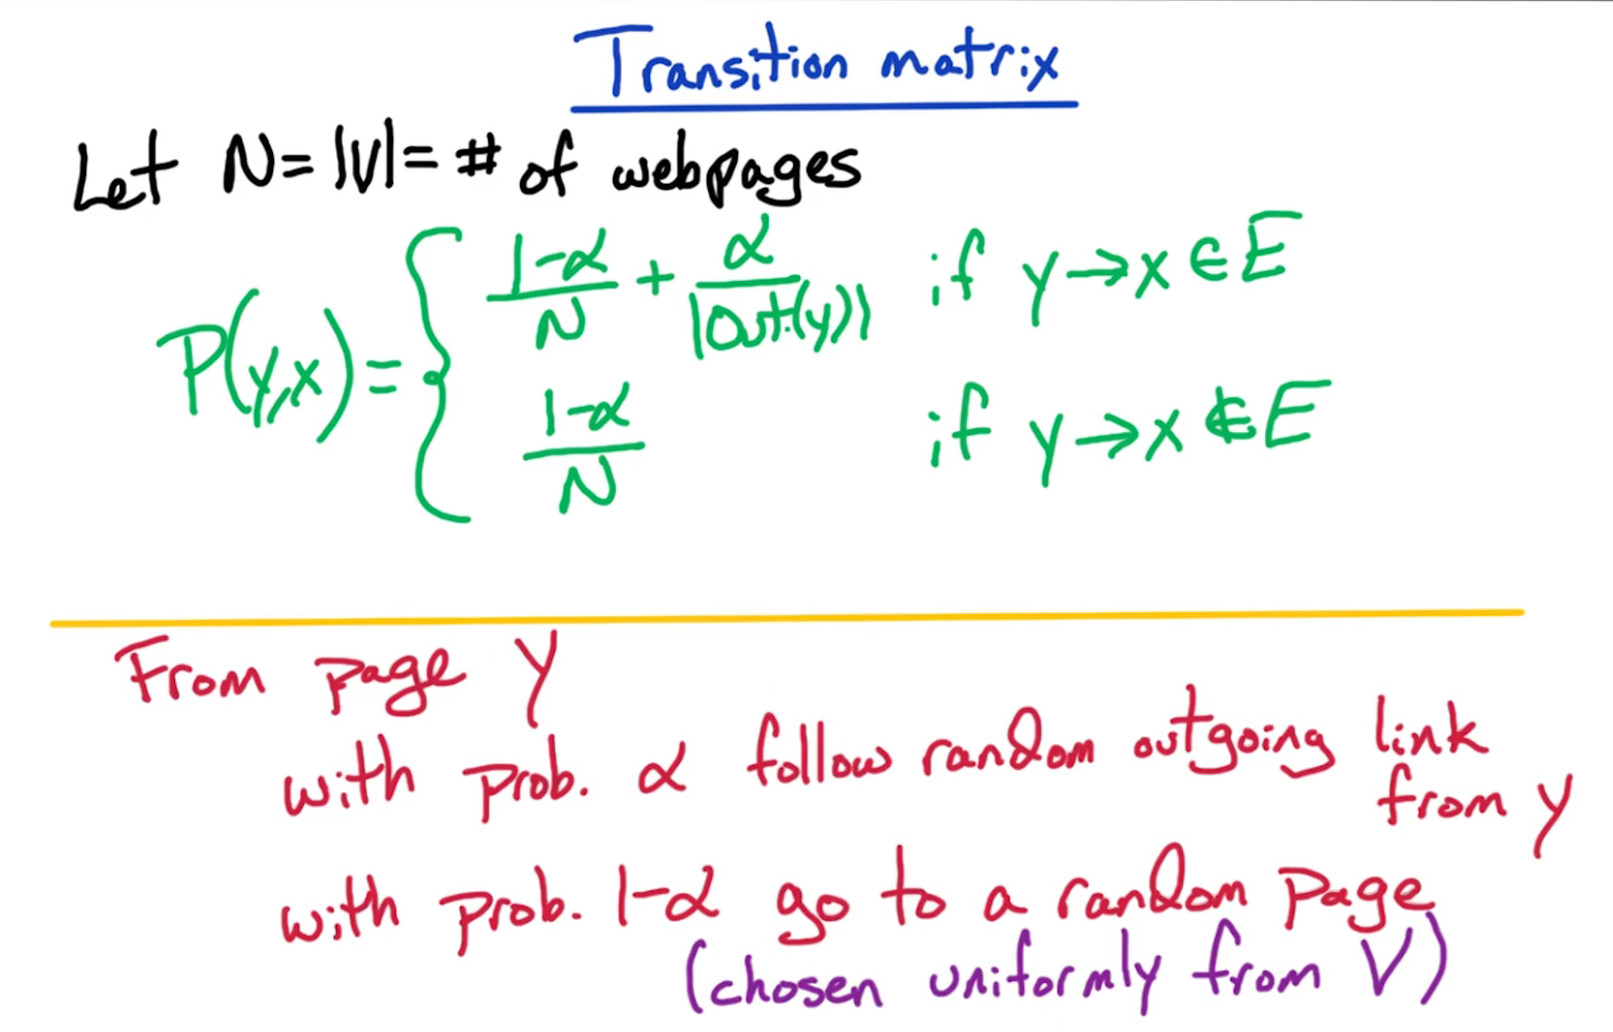 Transition matrix
Let N = |V| = # of webpages
P(y,x) = { (1-α)/N + α/|Out(y)| if y→x ∈ E
(1-α)/N if y→x ∉ E
From page y
with prob. α follow random outgoing link
from y
with prob. 1-α go to a random page
(chosen uniformly from V)